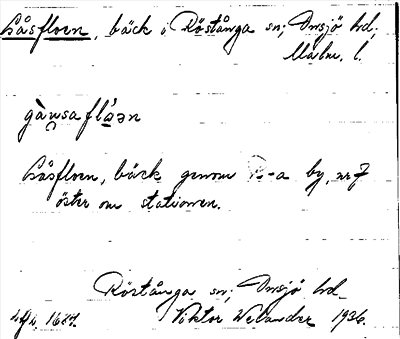 Gåsfloen, bäck i Röstånga sn; Onsjö hd,
Malm. l.
gàu̯saflǻən
Gåsfloen, bäck genom R-a by, nr 7
öster om stationen.
Röstånga sn; Onsjö hd
Viktor Welander 1936.